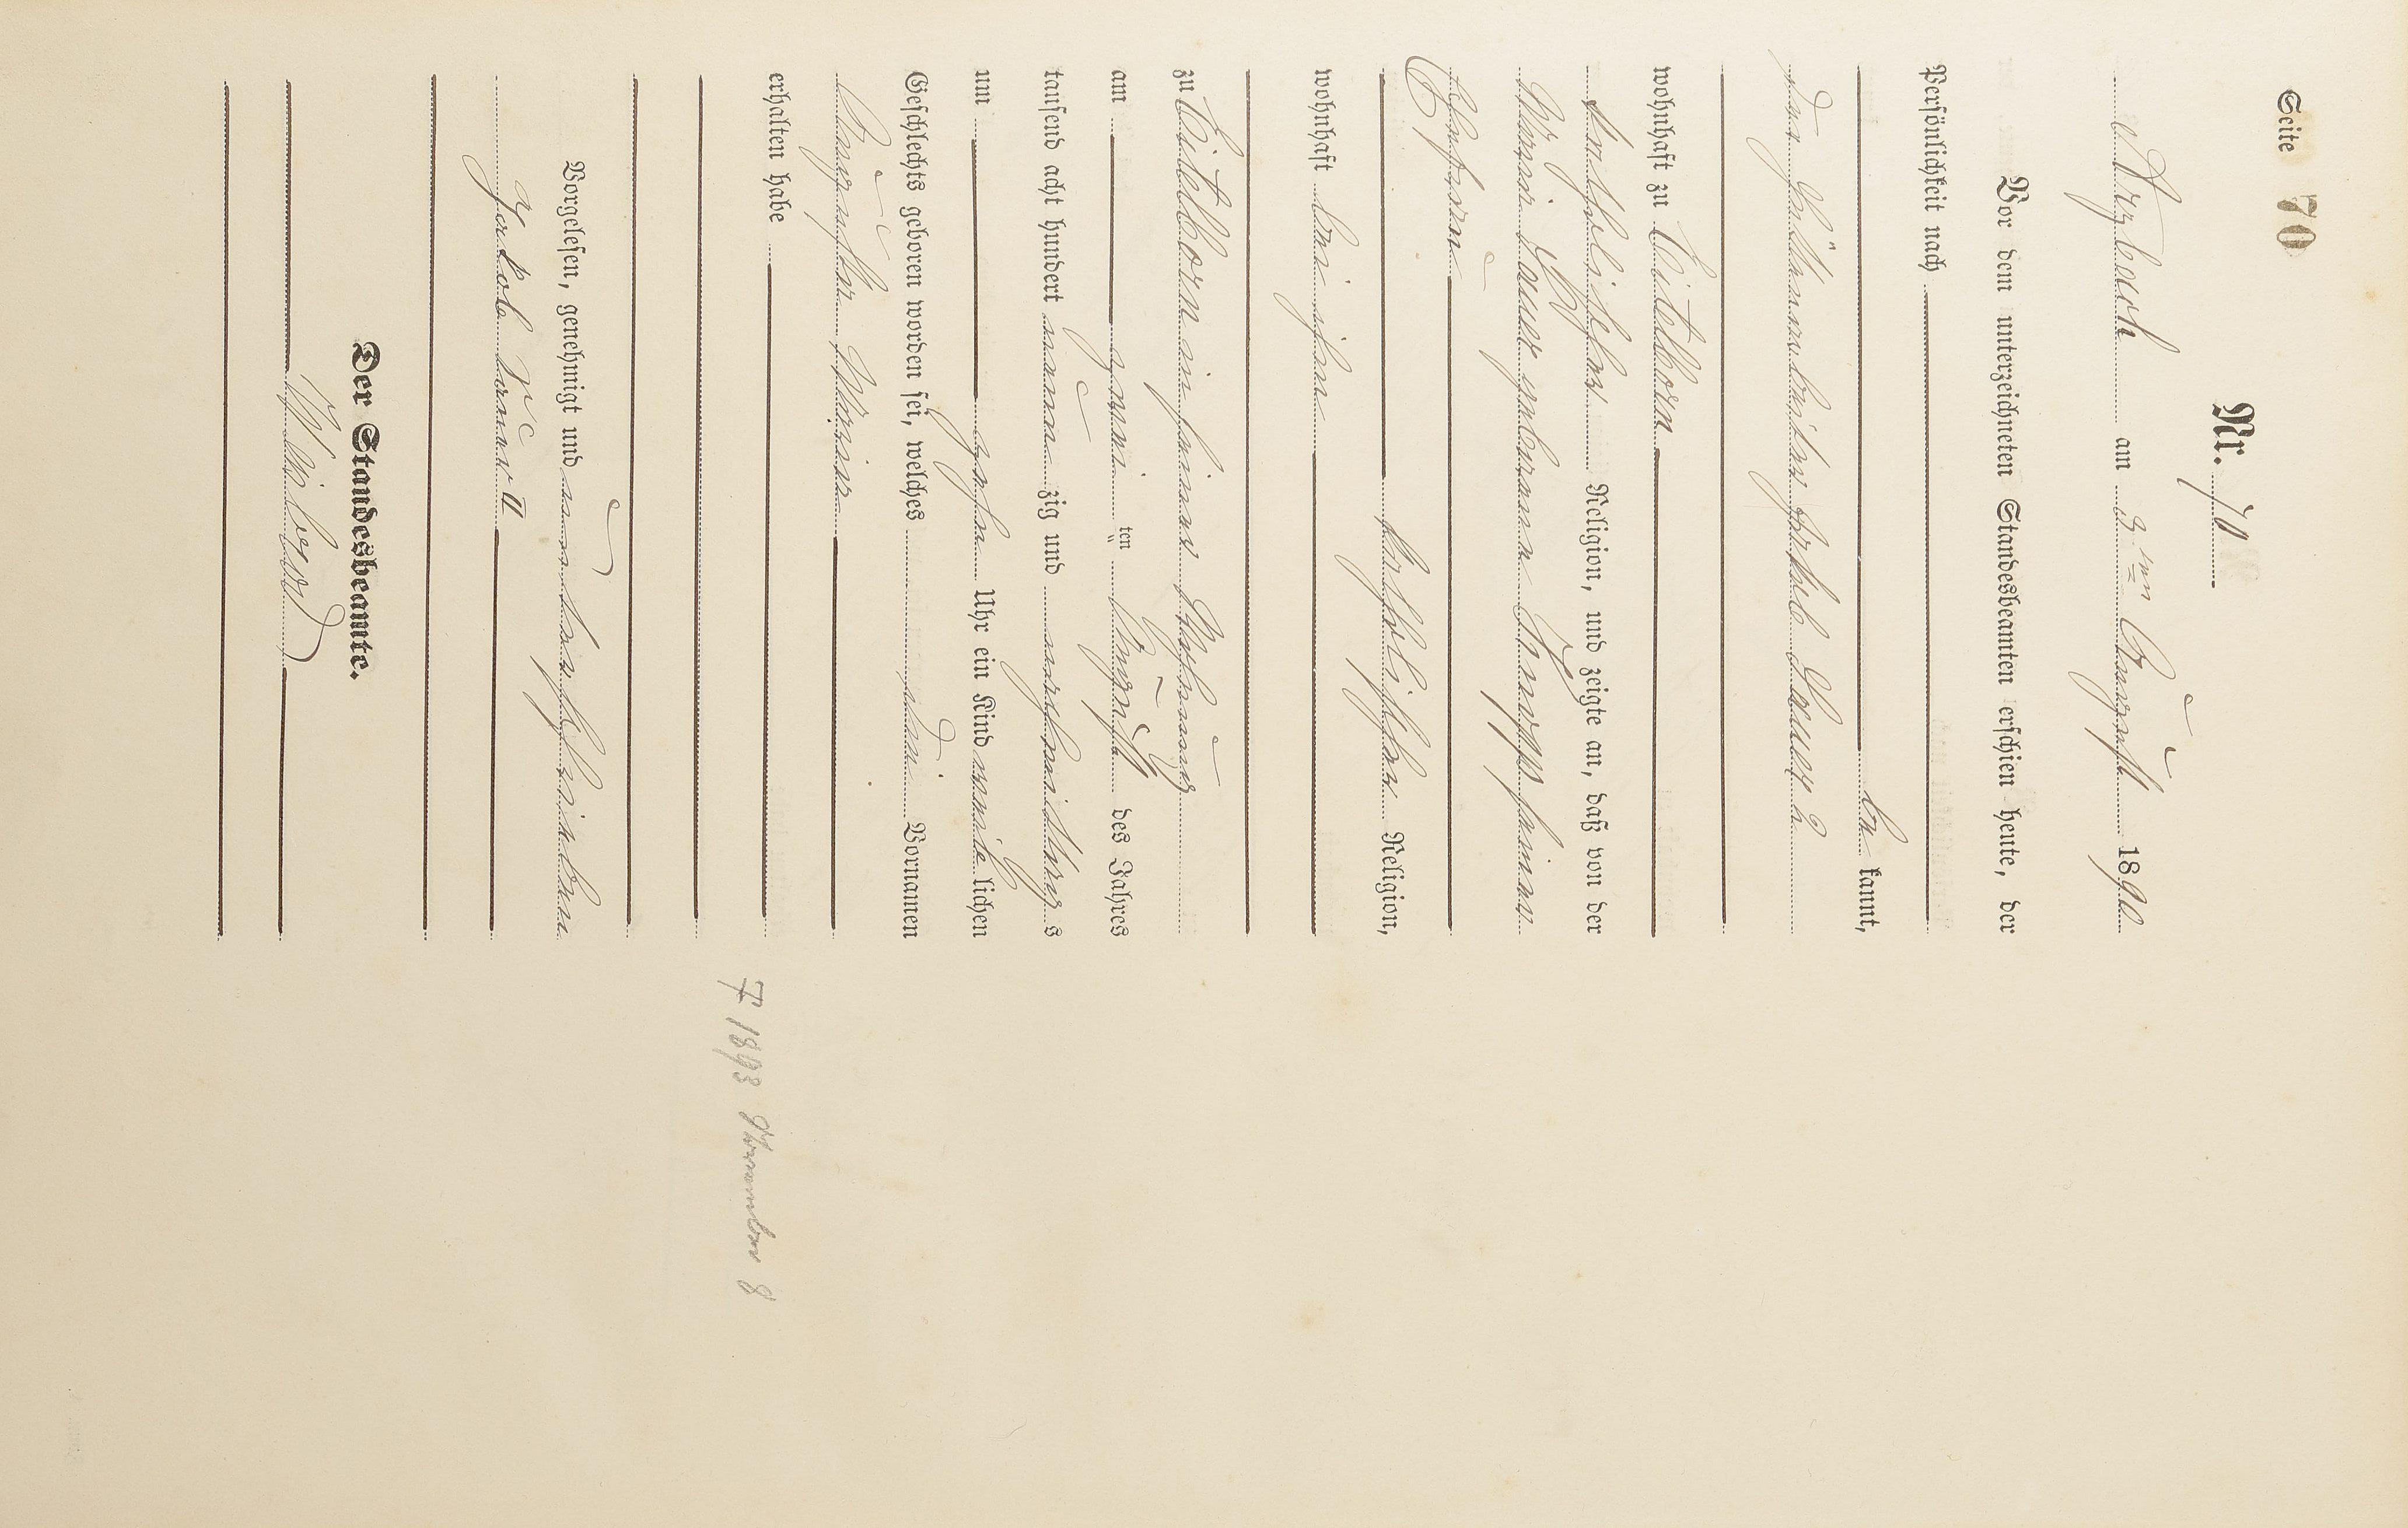 Seite 70
Nr. 70
Arzbach am 3ten August 1890
Vor dem unterzeichneten Standesbeamten erschien heute, der
Persönlichkeit nach
be kannt,
der Hüttenarbeiter Jakob Sauer 2
wohnhaft zu Eitelborn
katholischer Religion, und zeigte an, daß von der
Maria Sauer geborenen Knopp seiner
Ehefrau
katholischer Religion,
wohnhaft bei ihm
zu Eitelborn in seiner Wohnung
am zwei ten August des Jahres
tausend acht hundert neun zig und vormittags
um zehn Uhr ein Kind weib lichen
Geschlechts geboren worden sei, welches die Vornamen
Auguste Maria
erhalten habe
Vorgelesen, genehmigt und unterschrieben
Jakob Sauer II
Der Standesbeamte.
† 1893 November 8